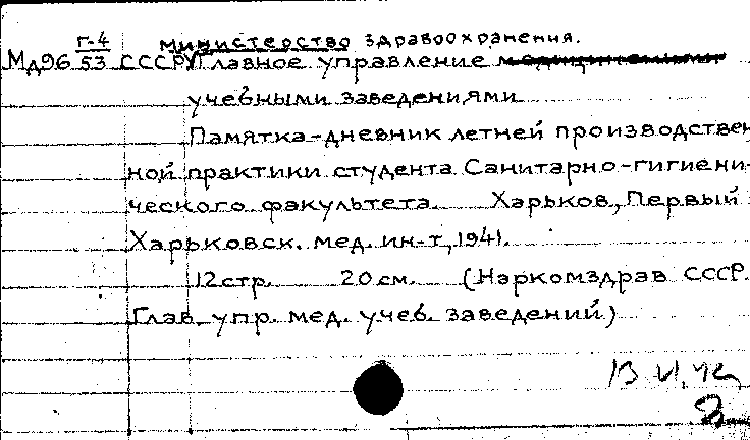 Г-4 Министерство здравоохранения.
Мд96 53 СССР Главное управление
учебными заведениями
Памятка-дневник летней производствен
ной практики студента Санитарно-гигиени-
ческого факультета. Харьков, Первый
Харьковск. мед. ин-т, 1941.
12 стр. 20 см. (Наркомздрав СССР.
Глав. упр. мед. учеб. заведений)